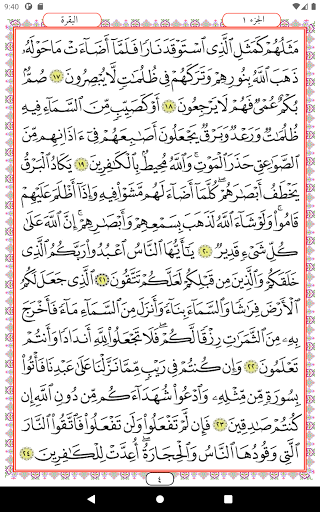 9:40
الجزء ١ البقرة
مَثَلُهُمْ كَمَثَلِ ٱلَّذِى ٱسْتَوْقَدَ نَارًا فَلَمَّآ أَضَآءَتْ مَا حَوْلَهُۥ
ذَهَبَ ٱللَّهُ بِنُورِهِمْ وَتَرَكَهُمْ فِى ظُلُمَٰتٍ لَّا يُبْصِرُونَ ١٧ صُمٌّۢ
بُكْمٌ عُمْىٌ فَهُمْ لَا يَرْجِعُونَ ١٨ أَوْ كَصَيِّبٍ مِّنَ ٱلسَّمَآءِ فِيهِ
ظُلُمَٰتٌ وَرَعْدٌ وَبَرْقٌ يَجْعَلُونَ أَصَٰبِعَهُمْ فِىٓ ءَاذَانِهِم مِّنَ
ٱلصَّوَٰعِقِ حَذَرَ ٱلْمَوْتِ وَٱللَّهُ مُحِيطٌۢ بِٱلْكَٰفِرِينَ ١٩ يَكَادُ ٱلْبَرْقُ
يَخْطَفُ أَبْصَٰرَهُمْ كُلَّمَآ أَضَآءَ لَهُم مَّشَوْا۟ فِيهِ وَإِذَآ أَظْلَمَ عَلَيْهِمْ
قَامُوا۟ وَلَوْ شَآءَ ٱللَّهُ لَذَهَبَ بِسَمْعِهِمْ وَأَبْصَٰرِهِمْ إِنَّ ٱللَّهَ عَلَىٰ
كُلِّ شَىْءٍ قَدِيرٌ ٢٠ يَٰٓأَيُّهَا ٱلنَّاسُ ٱعْبُدُوا۟ رَبَّكُمُ ٱلَّذِى
خَلَقَكُمْ وَٱلَّذِينَ مِن قَبْلِكُمْ لَعَلَّكُمْ تَتَّقُونَ ٢١ ٱلَّذِى جَعَلَ لَكُمُ
ٱلْأَرْضَ فِرَٰشًا وَٱلسَّمَآءَ بِنَآءً وَأَنزَلَ مِنَ ٱلسَّمَآءِ مَآءً فَأَخْرَجَ
بِهِۦ مِنَ ٱلثَّمَرَٰتِ رِزْقًا لَّكُمْ فَلَا تَجْعَلُوا۟ لِلَّهِ أَندَادًا وَأَنتُمْ
تَعْلَمُونَ ٢٢ وَإِن كُنتُمْ فِى رَيْبٍ مِّمَّا نَزَّلْنَا عَلَىٰ عَبْدِنَا فَأْتُوا۟
بِسُورَةٍ مِّن مِّثْلِهِۦ وَٱدْعُوا۟ شُهَدَآءَكُم مِّن دُونِ ٱللَّهِ إِن
كُنتُمْ صَٰدِقِينَ ٢٣ فَإِن لَّمْ تَفْعَلُوا۟ وَلَن تَفْعَلُوا۟ فَٱتَّقُوا۟ ٱلنَّارَ
ٱلَّتِى وَقُودُهَا ٱلنَّاسُ وَٱلْحِجَارَةُ أُعِدَّتْ لِلْكَٰفِرِينَ ٢٤
٤